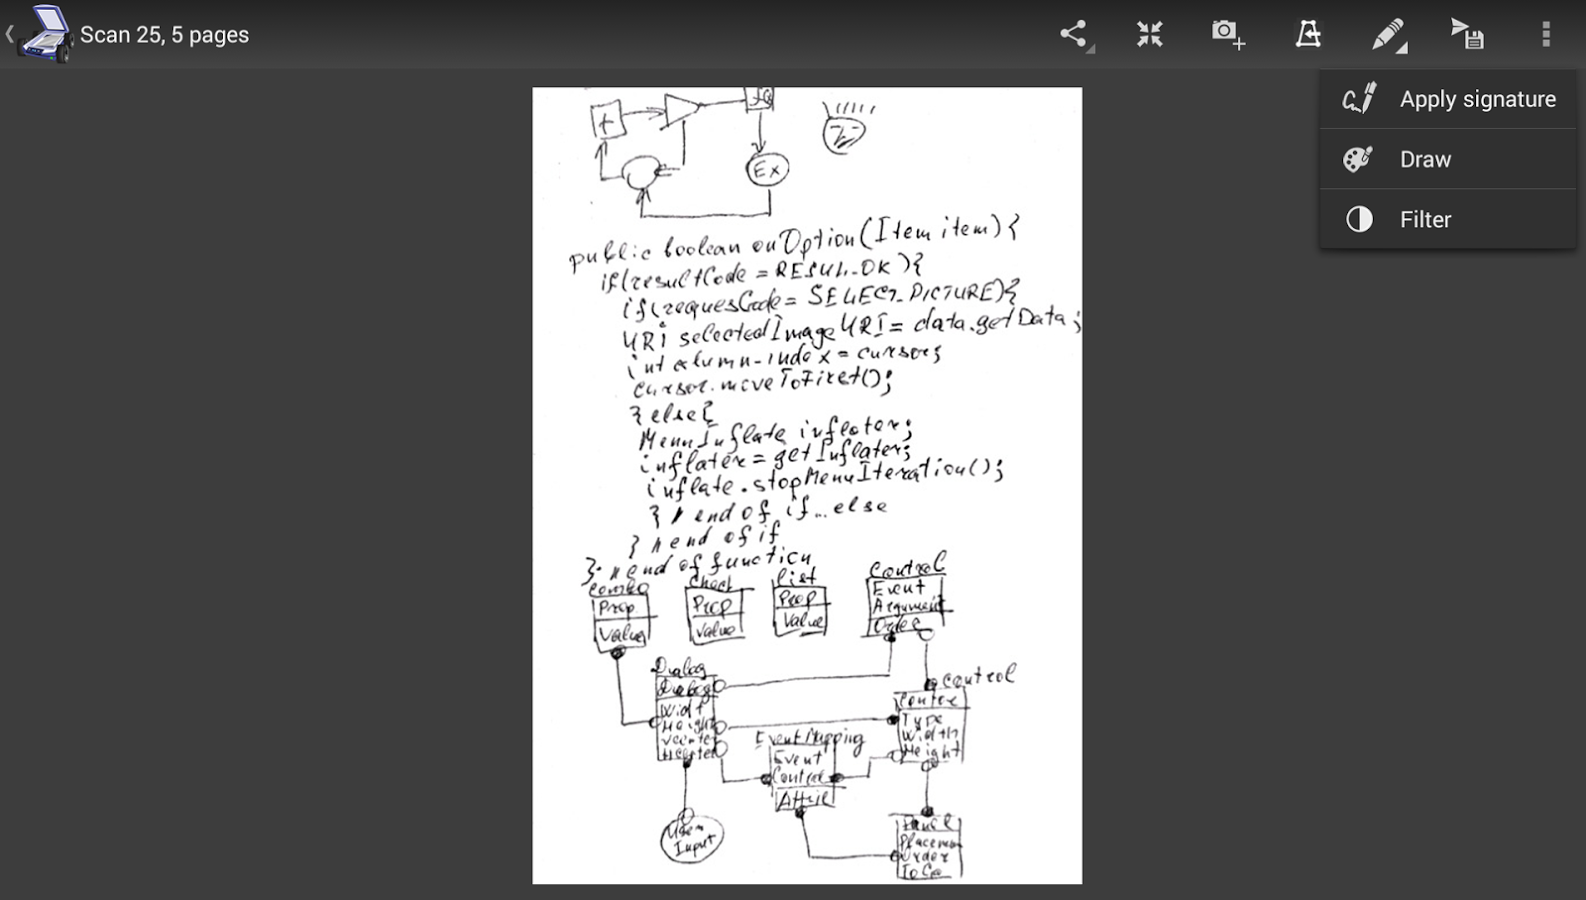 Scan 25, 5 pages
Apply signature
Draw
Filter
+
Ex
public boolean onOption(Item item){
if(resultCode = RESUL_OK){
if(requesCode = SELECT_PICTURE){
URi selectedImageURI = data.getData;
int column-index = cursor;
cursor.moveToFirst();
} else{
MenuInflate inflater;
inflater = getInflater;
inflate.stopMenuIteration();
} // end of if...else
} // end of if
}; // end of function
Combo
Check
List
Control
Prop
Prop
Prop
Event
Argument
Value
Value
Value
Order
Dialog
Dialog
Control
Widt
Height
Type
Width
Height
EventMapping
Event
Control
Attrie
User
Input
Panel
Placemen
Order